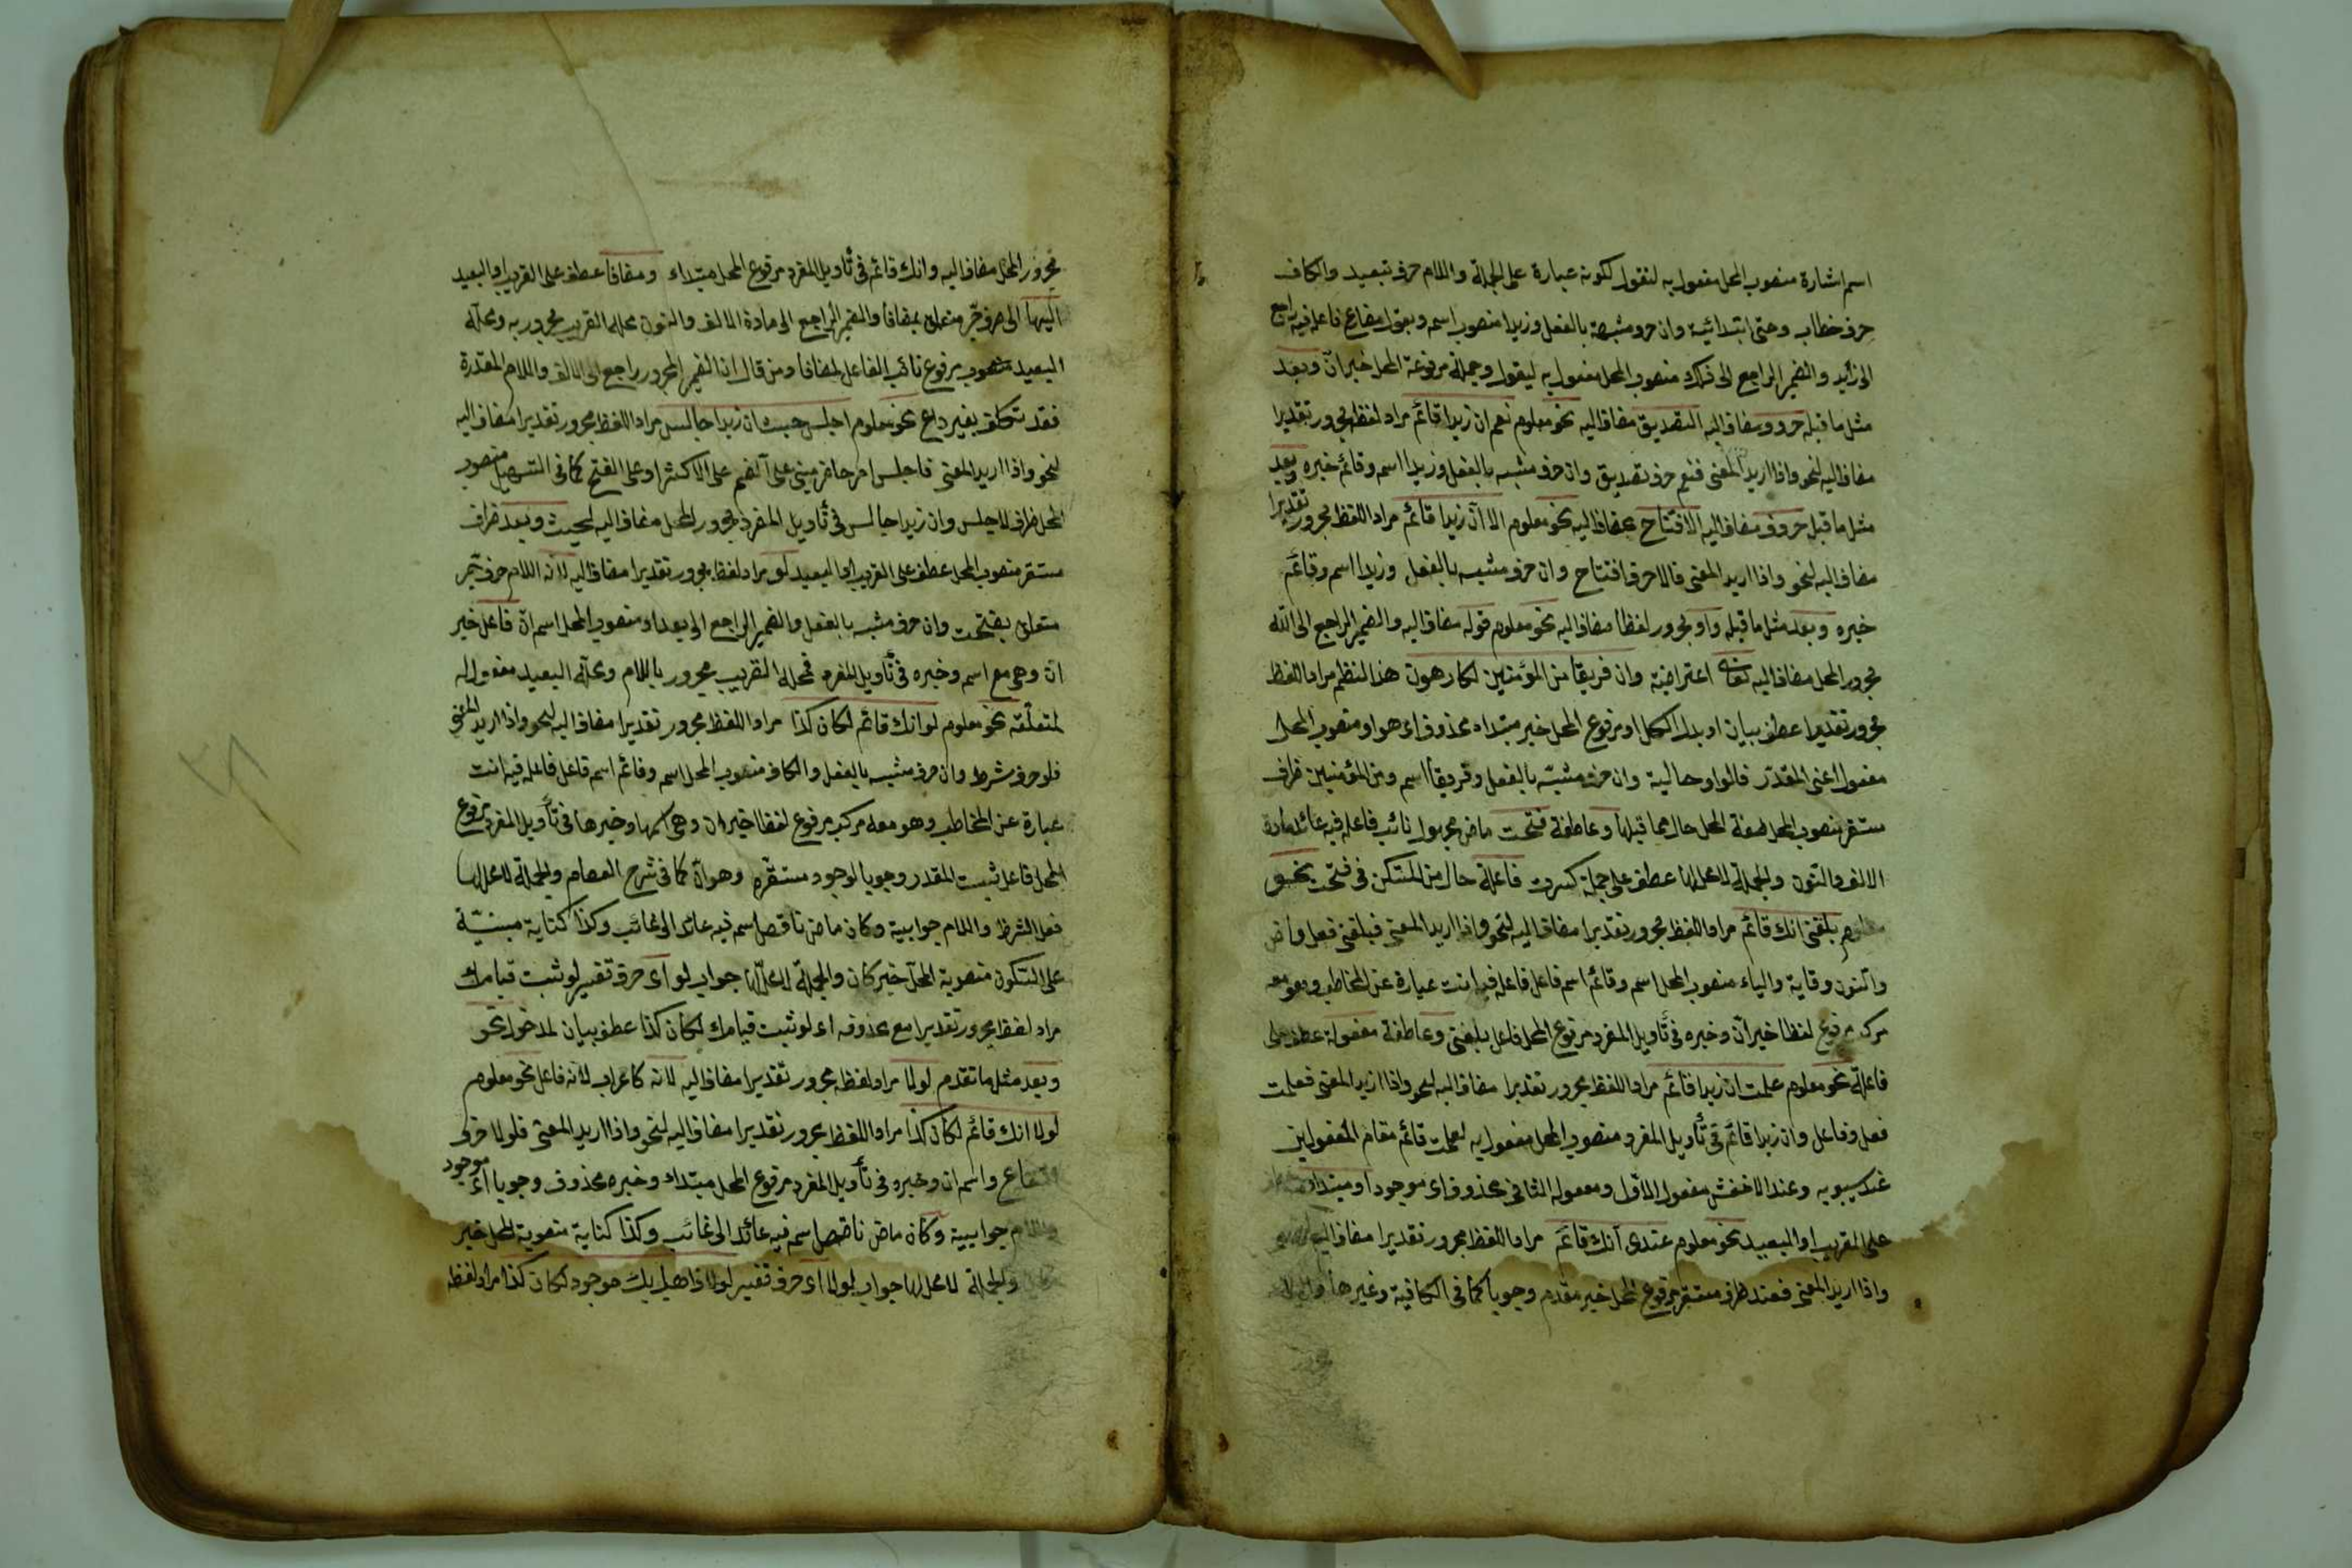 اسم اشارة منصوب المحل مفعول به لنقول لكونه عبارة على الجملة واللام حرف تبعيد والكاف
حرف خطاب وحتى ابتدائية وان حرف مشبهة بالفعل وزيدا منصوب اسمه ويقول مضارع فاعله فيه راجع
الى زيد والضمير الراجع الى ذلك منصوب المحل مفعول به ليقول وجملة مرفوعة المحل خبر ان وبعد
مثل ما قبله حرف مضاف اليه التصديق مضاف اليه نحو معلوم نعم ان زيدا قائم مراد لفظه مجرور تقديرا
مضاف اليه لنحو واذا اريد المعنى فنعم حرف تصديق وان حرف مشبه بالفعل وزيدا اسمه وقائم خبره وبعد
مثل ما قبل حروف مضاف اليه الافتتاح مضاف اليه نحو معلوم الا ان زيدا قائم مراد اللفظ مجرور تقديرا
مضاف اليه لنحو واذا اريد المعنى فالا حرف افتتاح وان حرف مشبه بالفعل وزيدا اسم وقائم
خبره وبعد مثل ما قبله واو مجرور لفظا مضاف اليه نحو معلوم قوله مضاف اليه والضمير الراجع الى الله
مجرور المحل مضاف اليه تعالى اعتراضية وان فريقا من المؤمنين لكارهون هذا النظم مراد اللفظ
مجرور تقديرا عطف بيان او بدل الكل او مرفوع المحل خبر مبتداء محذوف اى هو او منصوب المحل
مفعول اعنى المقدر فالواو حالية وان حرف مشبه بالفعل وفريقا اسم ومن المؤمنين ظرف
مستقر منصوب المحل صفة المحل حال مما قبلها وعاطفة فتحت ماض مجهول نائب فاعله فيه عائد مادة
الالف والنون والجملة لا محل لها عطف على جملة كسرت فاعلة حال من المستكن فى فتحت نحو
معلوم بلغنى انك قائم مراد اللفظ مجرور تقديرا مضاف اليه لنحو واذا اريد المعنى فبلغنى فعل ماض
والنون وقاية والياء منصوب المحل اسم وقائم اسم فاعل فاعله فيه انت عبارة عن المخاطب وهو معه
مركب مرفوع لفظا خبر ان وخبره فى تأويل المفرد مرفوع المحل فاعل بلغنى وعاطفة مفعولة عطف على
فاعلة نحو معلوم علمت ان زيدا قائم مراد اللفظ مجرور تقديرا مضاف اليه لنحو واذا اريد المعنى فعلمت
فعل وفاعل وان زيدا قائم فى تأويل المفرد منصوب المحل مفعول به لعلمت قائم مقام المفعولين
عند سيبويه وعند الاخفش مفعول الاول ومفعوله الثانى محذوف اى موجودا ومبتداء
على القريب او البعيد نحو معلوم عندى انك قائم مراد اللفظ مجرور تقديرا مضاف اليه
واذا اريد المعنى فعند ظرف مستقر مرفوع المحل خبر مقدم وجوبا كما فى الكافية وغيرها
مجرور المحل مضاف اليه وانك قائم فى تأويل المفرد مرفوع المحل مبتداء ومضافا عطف على القريب او البعيد
اليها الى حرف جر متعلق بمضافا والضمير الراجع الى مادة الالف والنون محله القريب مجرور به ومحله
البعيد مرفوع نائب الفاعل لمضافا ومن قال ان الضمير المجرور راجع الى الالف واللام المقدرة
فقد تكلف بغير داع نحو معلوم اجلس حيث ان زيدا جالس مراد اللفظ مجرور تقديرا مضاف اليه
لنحو واذا اريد المعنى فاجلس امر حاضر مبنى على الضم على الاكثر او على الفتح كما فى التسهيل منصوب
المحل ظرف لاجلس وان زيدا جالس فى تأويل المفرد مجرور المحل مضاف اليه لحيث وبعد ظرف
مستقر منصوب المحل عطف على القريب او البعيد لو مراد لفظه مجرور تقديرا مضاف اليه لانه اللام حرف جر
متعلق بفتحت وان حرف مشبه بالفعل والضمير الراجع الى بعد او منصوب المحل اسم ان فاعل خبر
ان وهى مع اسم وخبره فى تأويل المفرد فمحله القريب مجرور باللام ومحله البعيد مفعول له
لمتعلقه نحو معلوم لو انك قائم لكان كذا مراد اللفظ مجرور تقديرا مضاف اليه لنحو واذا اريد المعنى
فلو حرف شرط وان حرف مشبه بالفعل والكاف منصوب المحل اسم وقائم اسم فاعل فاعله فيه انت
عبارة عن المخاطب وهو معه مركب مرفوع لفظا خبر ان وهى اسمها وخبرها فى تأويل المفرد مرفوع
المحل فاعل ثبت المقدر وجوبا لوجود مستقره وهو ان كما فى شرح العصام والجملة لا محل لها
فعل الشرط واللام جوابية وكان ماض ناقص اسم فيه عائد الى غائب وكذا كناية مبنية
على السكون منصوبة المحل خبر كان والجملة لا محل لها جواب لو اى حرف تفسير لو ثبت قيامك
مراد لفظه مجرور تقديرا مع محذوفه اى لو ثبت قيامك لكان كذا عطف بيان لمدخول نحو
وبعد مثل ما تقدم لولا مراد لفظه مجرور تقديرا مضاف اليه لانه كاعراب لانه فاعل نحو معلوم
لولا انك قائم لكان كذا مراد اللفظ مجرور تقديرا مضاف اليه لنحو واذا اريد المعنى فلولا حرف
امتناع واسم ان وخبره فى تأويل المفرد مرفوع المحل مبتداء وخبره محذوف وجوبا اى موجود
واللام جوابية وكان ماض ناقص اسم فيه عائد الى غائب وكذا كناية منصوبة المحل خبر
والجملة لا محل لها جواب لولا اى حرف تفسير لولا موجود لكان كذا مراد لفظه